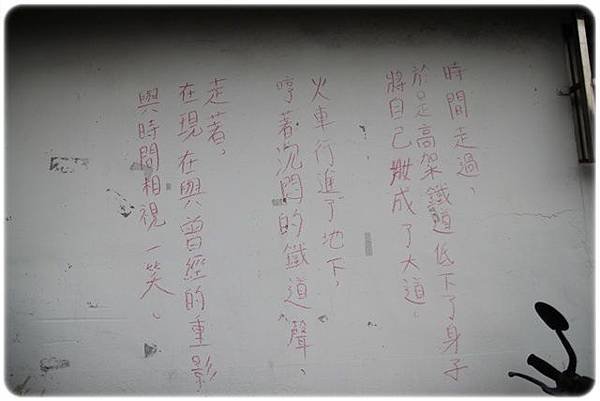 時間走過，
於是高架鐵道低下了身子
將自己妝成了大道。
火車行進了地下，
哼著沉悶的鐵道聲、
走著，
在現在與曾經的重影
與時間相視一笑。